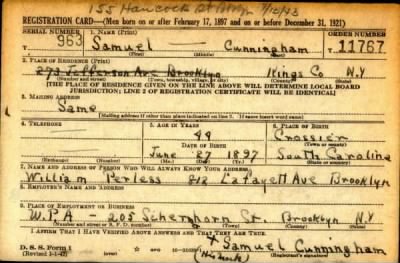 155 Hancock St Bklyn 7/12/43
REGISTRATION CARD—(Men born on or after February 17, 1897 and on or before December 31, 1921)
SERIAL NUMBER 1. NAME (Print) ORDER NUMBER
963 Samuel Cunningham 11767
(First) (Middle) (Last)
2. PLACE OF RESIDENCE (Print)
273 Jefferson Ave Brooklyn Kings Co N.Y
(Number and street) (Town, township, village, or city) (County) (State)
[THE PLACE OF RESIDENCE GIVEN ON THE LINE ABOVE WILL DETERMINE LOCAL BOARD
JURISDICTION; LINE 2 OF REGISTRATION CERTIFICATE WILL BE IDENTICAL]
3. MAILING ADDRESS
Same
[Mailing address if other than place indicated on line 2. If same insert word same]
4. TELEPHONE 5. AGE IN YEARS 6. PLACE OF BIRTH
44 Crossier
DATE OF BIRTH (Town or county)
June 27 1897 South Carolina
(Exchange) (Number) (Mo.) (Day) (Yr.) (State or country)
7. NAME AND ADDRESS OF PERSON WHO WILL ALWAYS KNOW YOUR ADDRESS
William Perless 812 Lafayett Ave Brooklyn
8. EMPLOYER'S NAME AND ADDRESS
9. PLACE OF EMPLOYMENT OR BUSINESS
W.P.A - 205 Scherhorn St. Brooklyn N.Y
(Number and street or R. F. D. number) (Town) (County) (State)
I AFFIRM THAT I HAVE VERIFIED ABOVE ANSWERS AND THAT THEY ARE TRUE.
D. S. S. Form 1 X Samuel Cunningham
(Revised 1-1-42) (his mark)